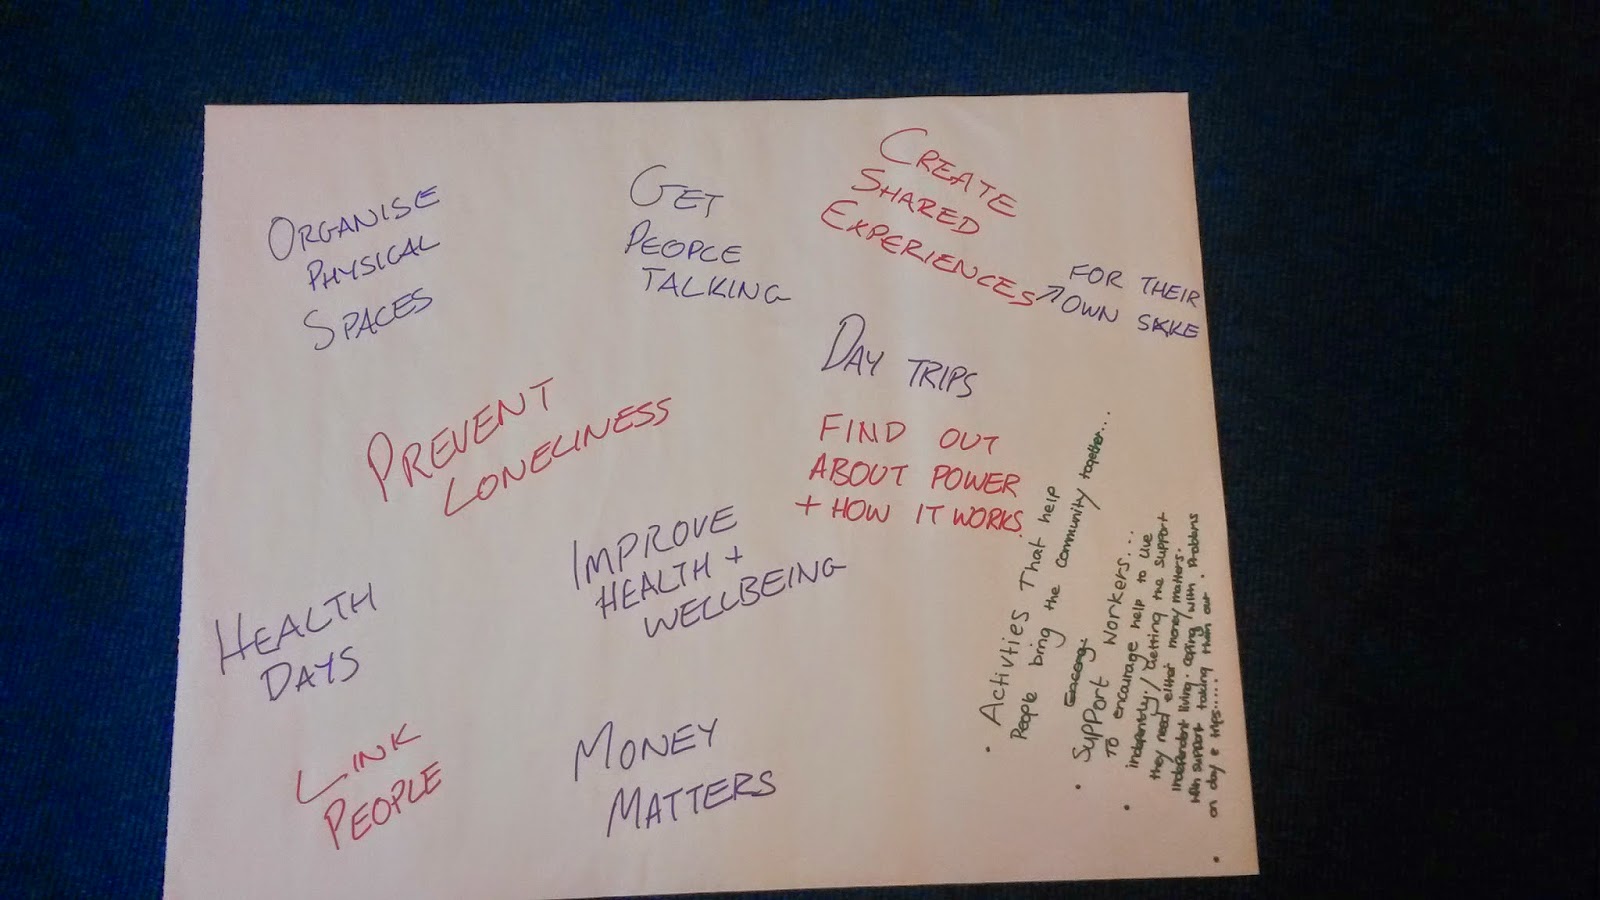 ORGANISE
PHYSICAL
SPACES
GET
PEOPLE
TALKING
CREATE
SHARED
EXPERIENCES
↗ FOR THEIR
OWN SAKE
DAY TRIPS
PREVENT
LONELINESS
FIND OUT
ABOUT POWER
+ HOW IT WORKS.
IMPROVE
HEALTH +
WELLBEING
HEALTH
DAYS
LINK
PEOPLE
MONEY
MATTERS
• Activties That help
People bring the community together...
• Support workers...
• To encourage help to live
indepently./Getting the support
they need either money matters.
independent living. coping with Problems
with support taking them out.
on day e trips.....
•